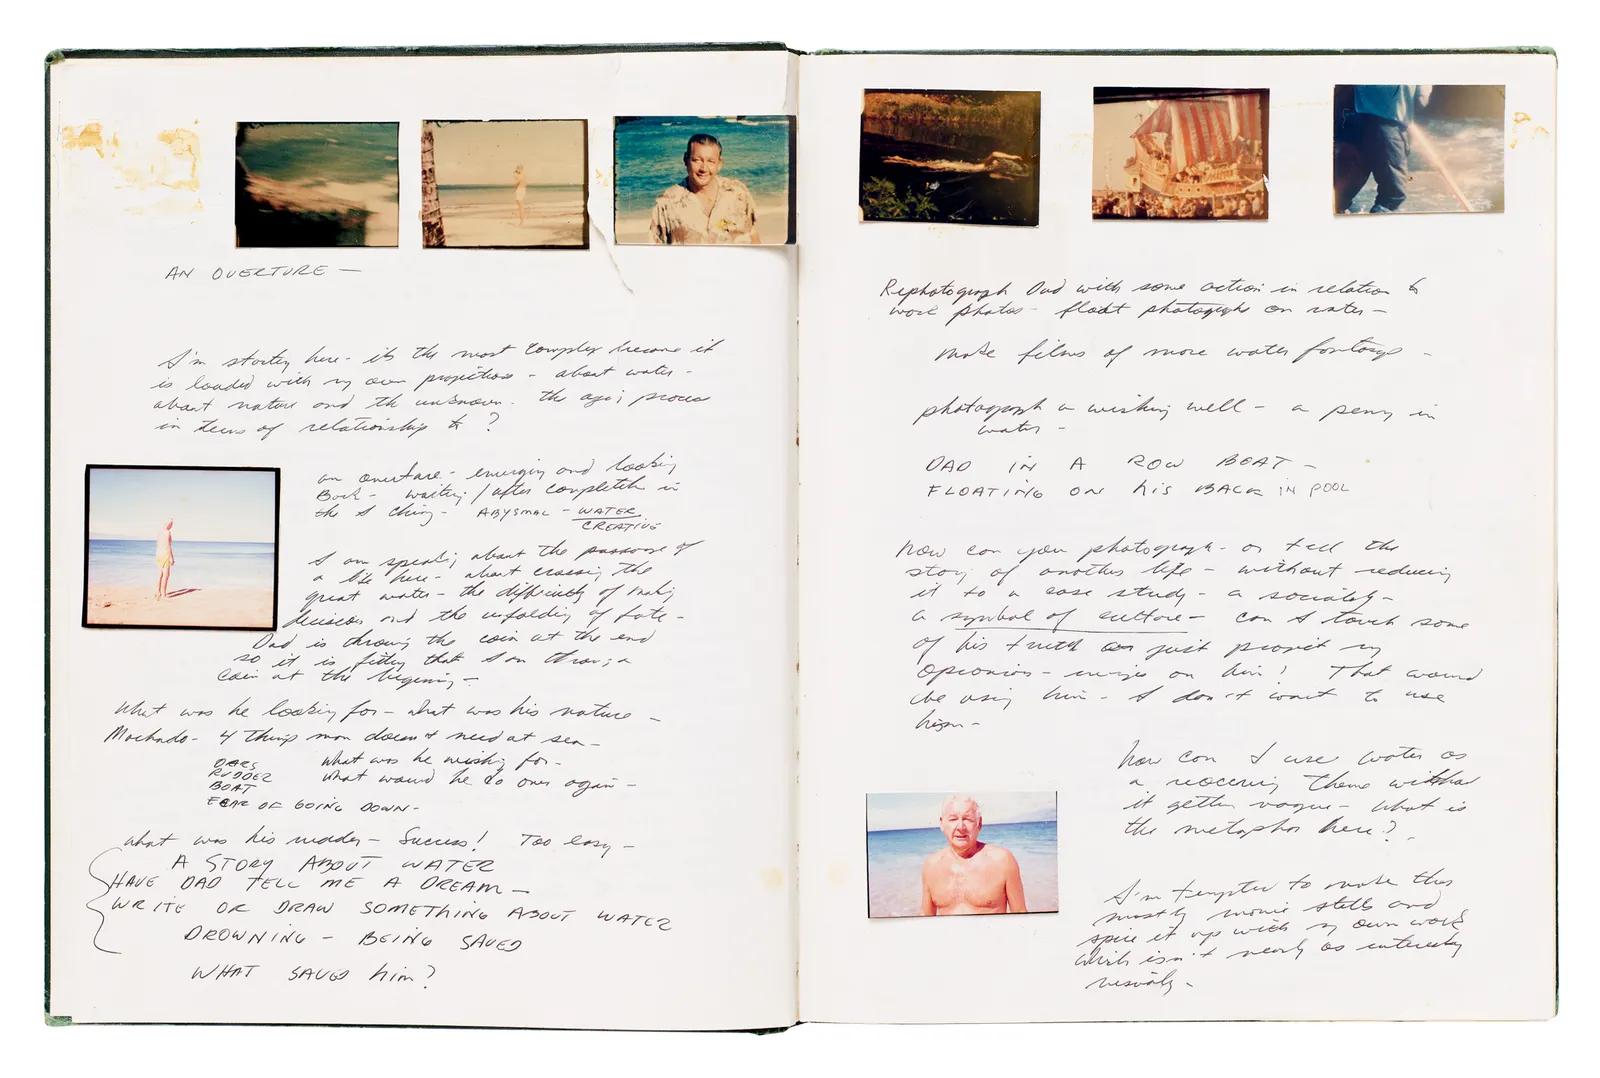 AN OVERTURE —
I'm starting here - it's the most complex because it
is loaded with my own projections - about water -
about nature and the unknown. the aging process
in terms of relationship to ?
an overture - emerging and looking
Back - waiting / after completion in
the I Ching - ABYSMAL - WATER
CREATIVE
I am speaking about the passage of
a life here - about crossing the
great water - the difficulty of making
decisions and the unfolding of fate -
Dad is throwing the coin at the end
so it is fitting that I am throwing a
Coin at the beginning -
What was he looking for - what was his nature -
Machado - 4 things man doesn't need at sea -
OARS what was he wishing for -
RUDDER what would he do over again -
BOAT
FEAR OF GOING DOWN -
what was his - Success! Too easy -
A STORY ABOUT WATER
HAVE DAD TELL ME A DREAM -
WRITE OR DRAW SOMETHING ABOUT WATER
DROWNING - BEING SAVED
WHAT SAVED him?
Rephotograph Dad with some action in relation to
work photos - float photographs on water -
make films of more water footage -
photograph a wishing well - a penny in
water -
DAD IN A ROW BOAT -
FLOATING ON his BACK IN POOL
How can you photograph - or tell the
story of another life - without reducing
it to a case study - a society -
a symbol of culture - can I touch some
of his truth or just project my
opinions - on him! That would
be using him - I don't want to use
him -
how can I use water as
a reoccuring theme without
it getting vague - what is
the metaphor here?
I'm tempted to make this
mostly movie stills and
spice it up with my own work
which isn't nearly as interesting
visually -